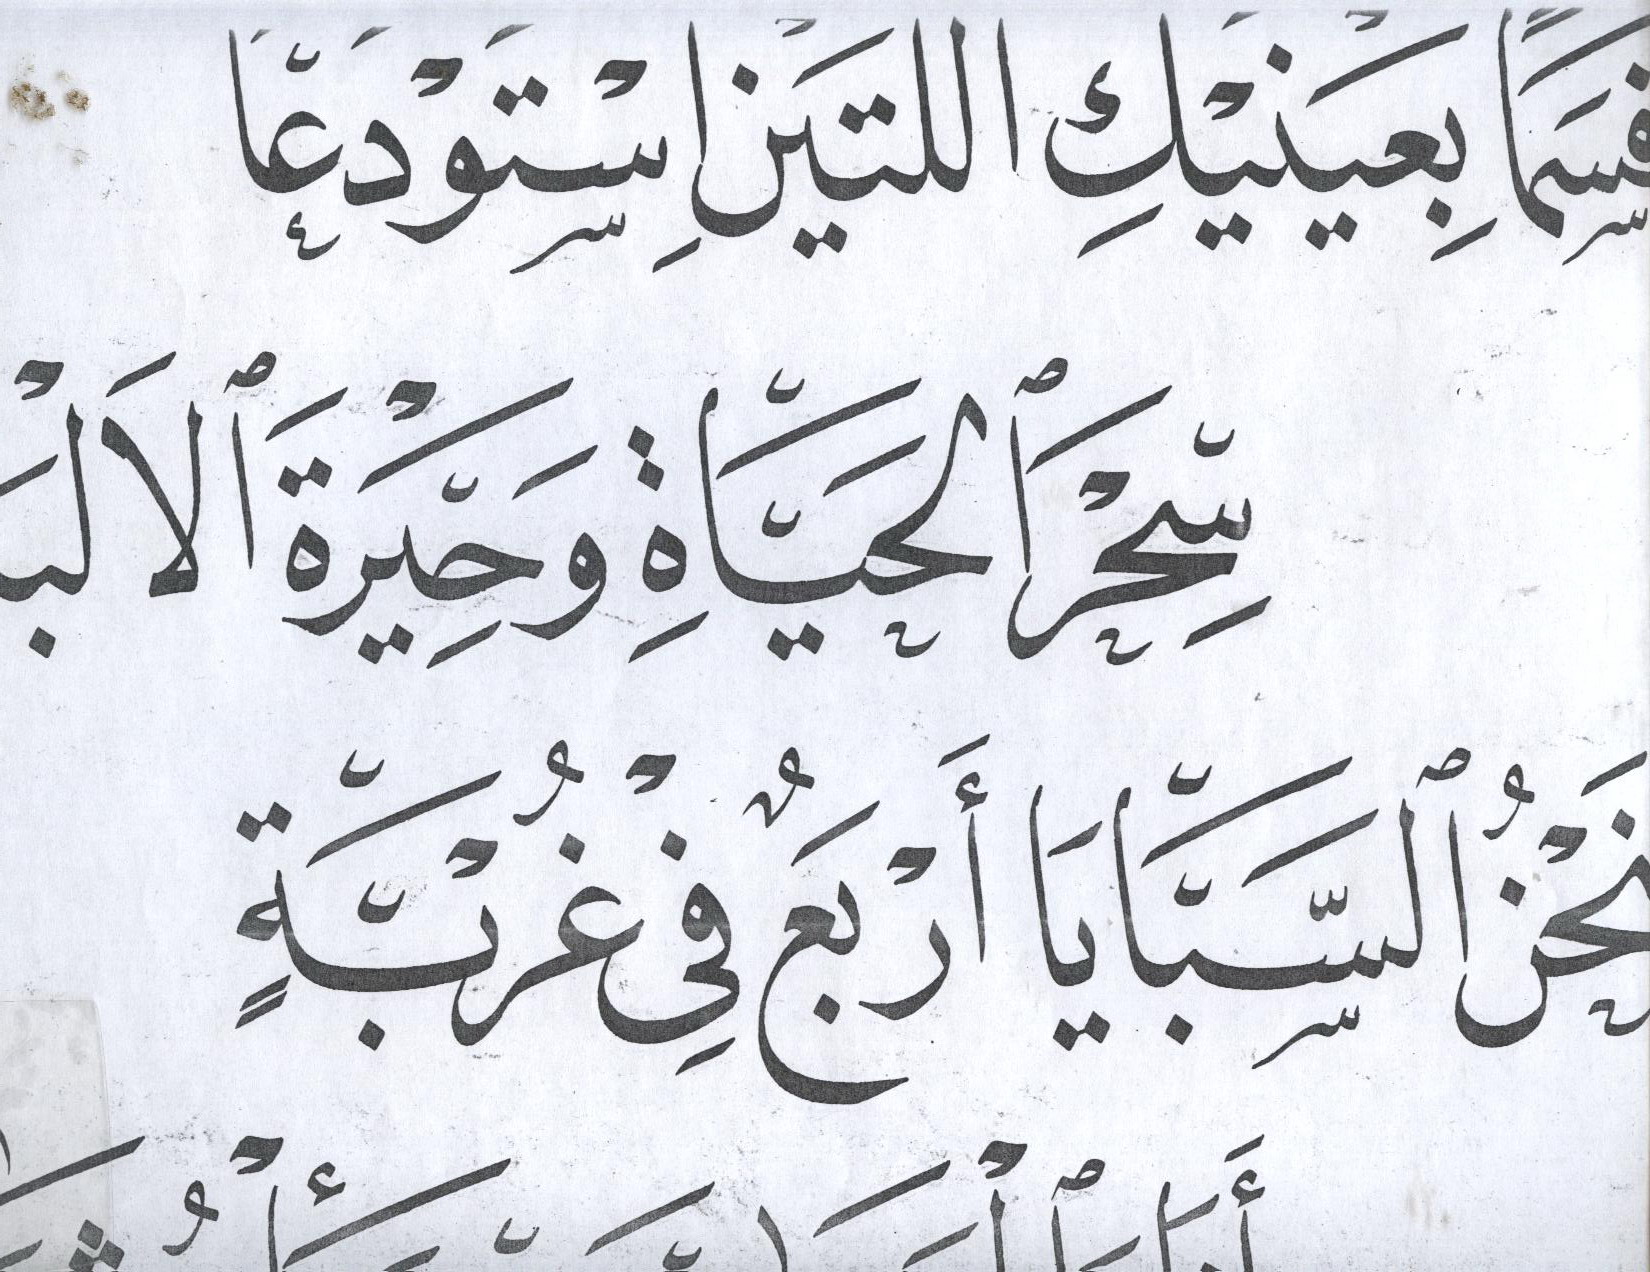 قَسَمًا بِعَيْنَيْكِ اللتَيْنِ اسْتَوْدَعَا
سِحْرَ ٱلحَيَاةِ وَحِيْرَةَ ٱلاَلْبَ
نَحْنُ ٱلسَّبَايَا أَرْبَعٌ فِى غُرْبَةٍ